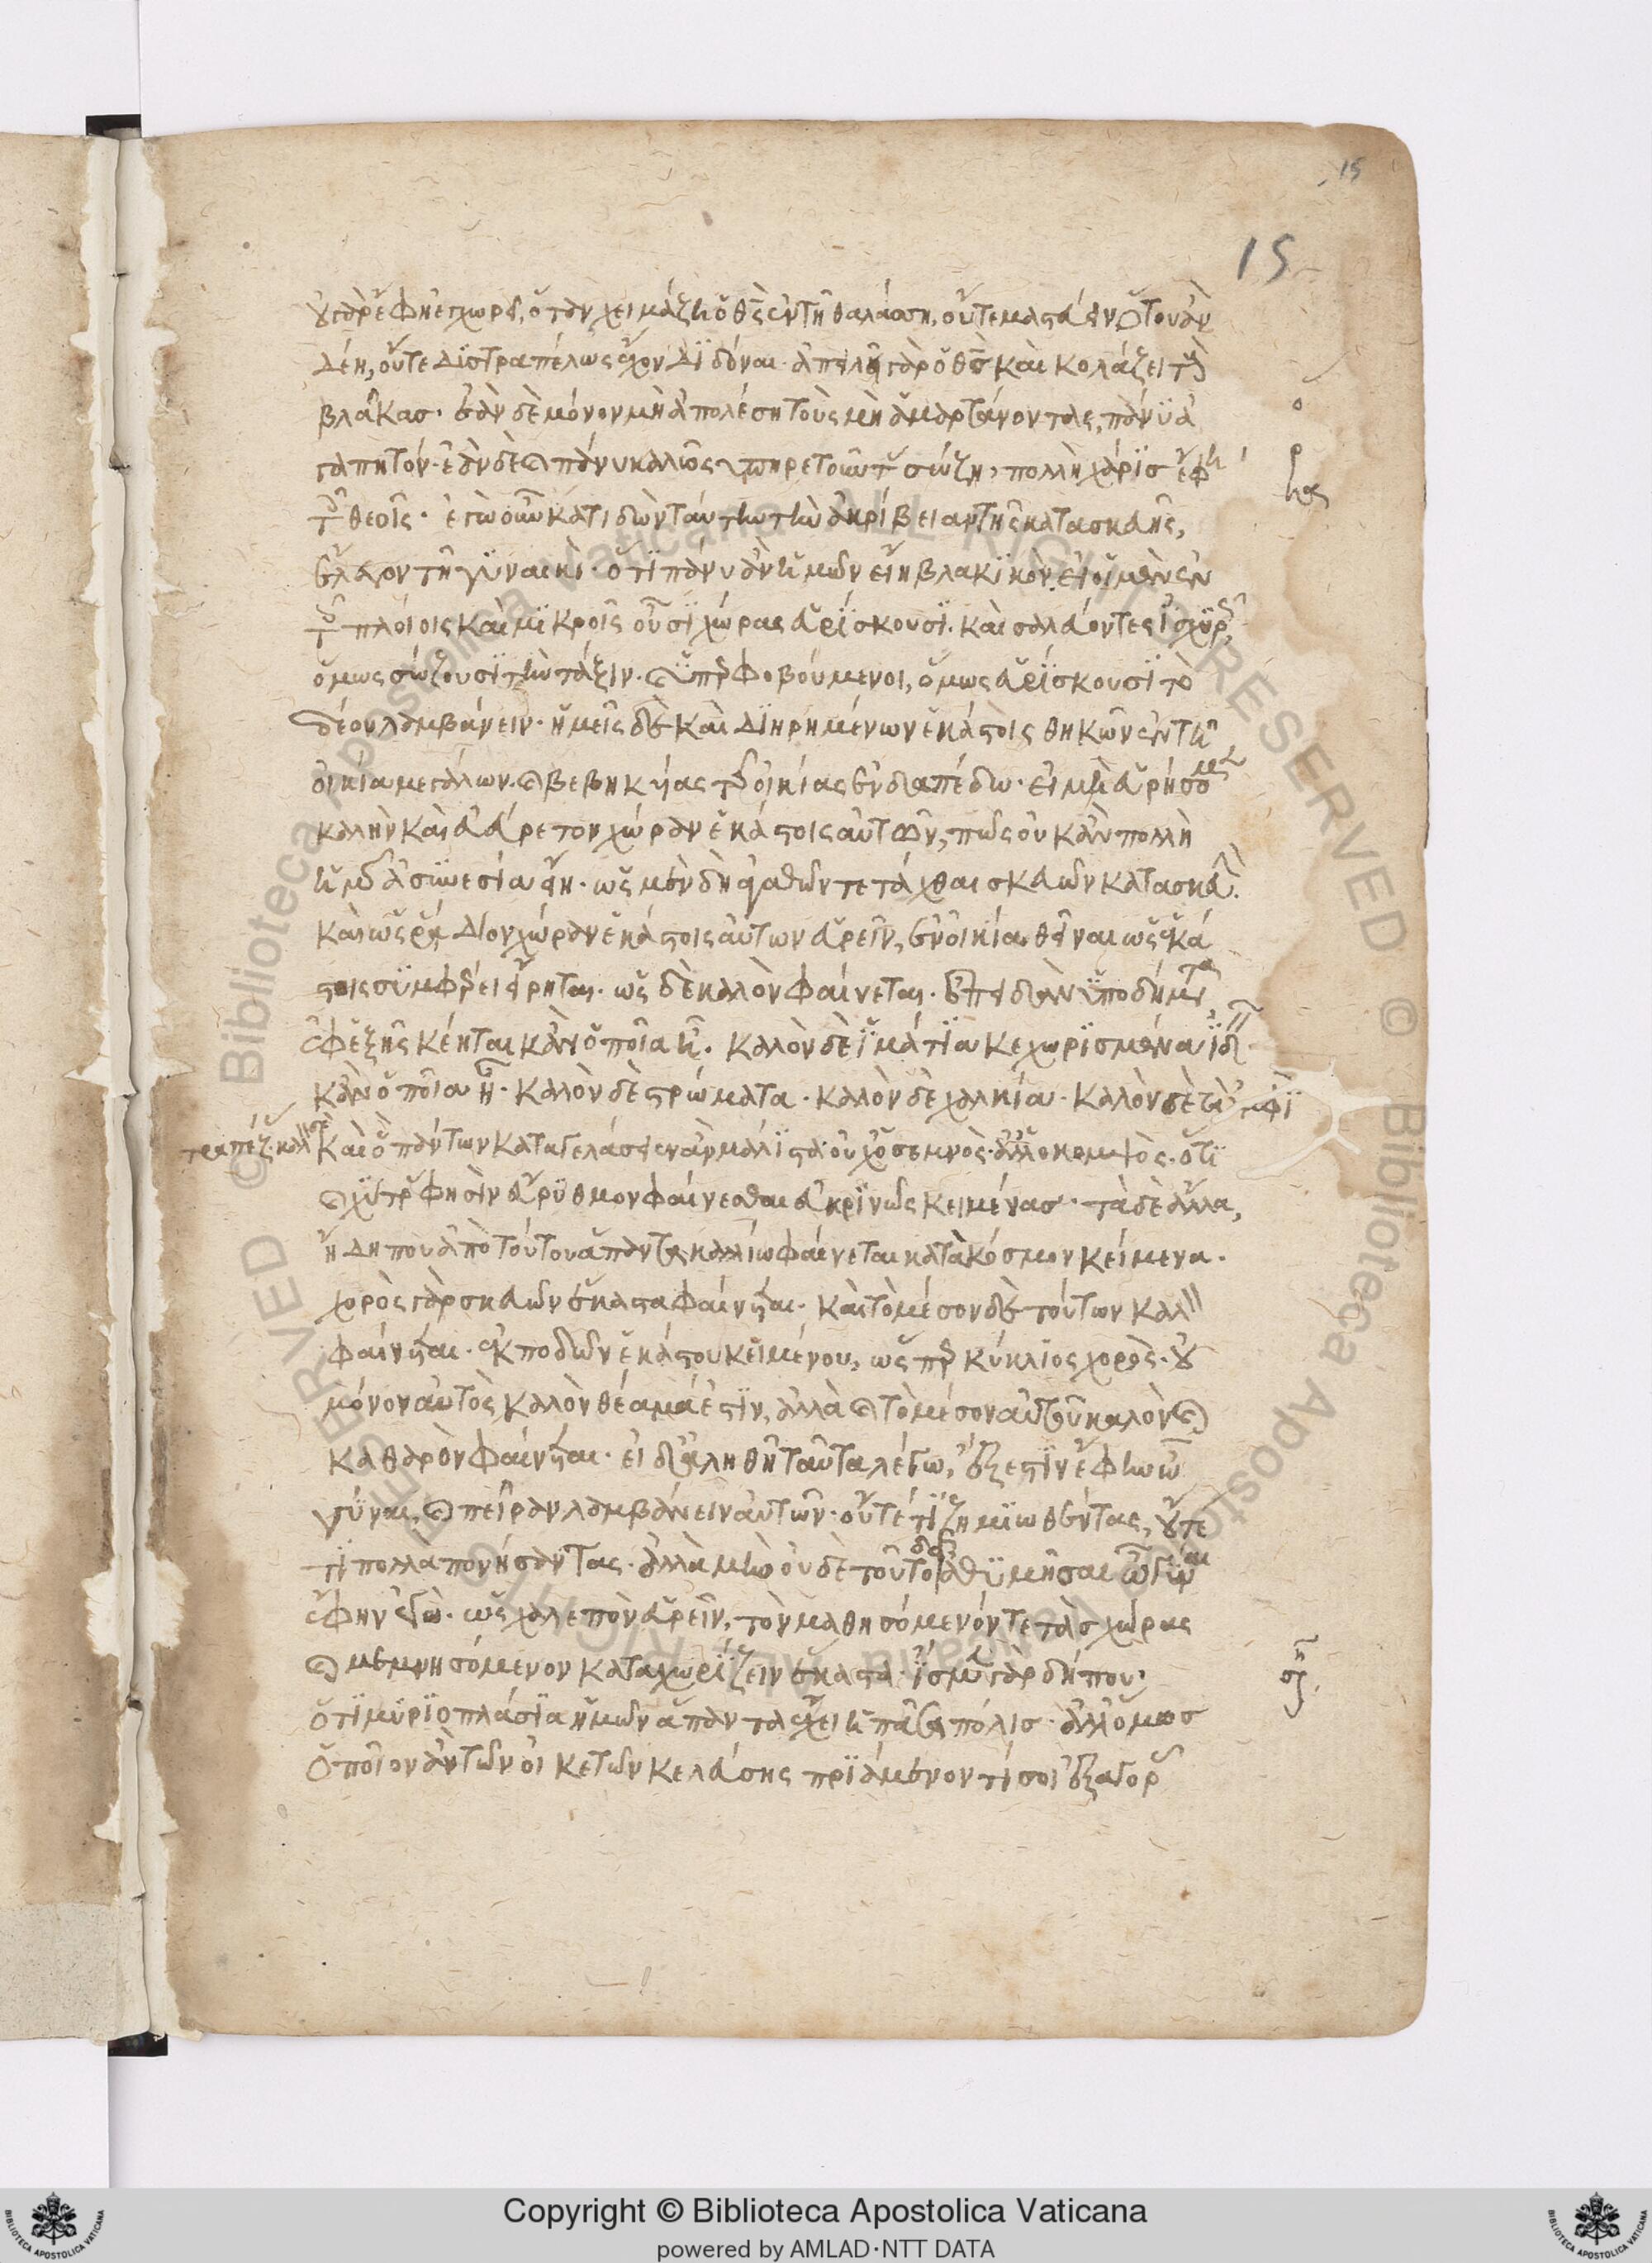 15
15
οὐ γὰρ ἔφη ἐγχωρεῖ, ὅταν χειμάζη ὁ θεὸς ἐν τῇ θαλάσση, οὔτε μαστεύειν ὅτου ἂν
δέη, οὔτε δυστραπέλως ἔχον διδόναι· ἀπειλεῖ γὰρ ὁ θεὸς καὶ κολάζει τοὺς
βλᾶκας· ἐὰν δὲ μόνον μὴ ἀπολέση τοὺς μὴ ἁμαρτάνοντας, πάνυ ἀ
γαπητόν· ἐὰν δὲ καὶ πάνυ καλῶς ὑπηρετοῦντας σώζη, πολλὴ χάρις ἔφη
τοῖς θεοῖς· ἐγὼ οὖν κατιδὼν ταύτην τὴν ἀκρίβειαν τῆς κατασκευῆς,
ἔλεγον τῆ γυναικὶ· ὅτι πάνυ ἂν ἡμῶν εἴη βλακικὸν εἰ οἱ μὲν ἐν
τοῖς πλοίοις καὶ μικροῖς οὖσι χώρας εὑρίσκουσι· καὶ σαλεύοντες ἰσχυρῶς,
ὅμως σώζουσι τὴν τάξιν· καὶ ὑπερφοβούμενοι, ὅμως εὑρίσκουσι τὸ
δέον λαμβάνειν· ἡμεῖς δὲ καὶ διηρημένων ἑκάστοις θηκῶν ἐν τῆ
οἰκία μεγάλων· καὶ βεβηκυίας τῆς οἰκίας ἐν δαπέδω· εἰ μὴ εὑρήσομεν
καλὴν καὶ εὐεύρετον χώραν ἑκάστοις αὐτῶν, πῶς οὐκ ἂν πολλὴ
ἡμῶν ἀσυνεσία εἴη· ὡς μὲν δὴ ἀγαθὸν τετάχθαι σκευῶν κατασκευὴν·
καὶ ὡς ῥάδιον χώραν ἑκάστοις αὐτῶν εὑρεῖν, ἐν οἰκία θεῖναι ὡς ἑκά
στοις συμφέρει εἴρηται· ὡς δὲ καλὸν φαίνεται· ἐπειδὰν ὑποδήματα
ἐφεξῆς κέηται κἂν ὁποῖα ἦ· καλὸν δὲ ἱμάτια κεχωρισμένα ἰδεῖν
κἂν ὁποῖα ἦ· καλὸν δὲ στρώματα· καλὸν δὲ χαλκία· καλὸν δὲ τὰ ἀμφὶ
τραπέζας· καλὸν δὲ
καὶ ὃ πάντων καταγελάσειεν ἂν μάλιστα οὐχ ὁ σεμνὸς· ἀλλ' ὁ κομψὸς· ὅτι
καὶ χύτρας φησὶν εὔρυθμον φαίνεσθαι εὐκρινῶς κειμένας· τὰ δὲ ἄλλα,
ἤδη που ἀπὸ τούτου ἅπαντα καλλίω φαίνεται κατὰ κόσμον κείμενα·
χορὸς γὰρ σκευῶν ἕκαστα φαίνεται· καὶ τὸ μέσον δὲ τούτων καλὸν
φαίνεται· ἐκποδὼν ἑκάστου κειμένου, ὥσπερ κύκλιος χορὸς· οὐ
μόνον αὐτὸς καλὸν θέαμά ἐστιν, ἀλλὰ καὶ τὸ μέσον αὐτοῦ καλὸν καὶ
καθαρὸν φαίνεται· εἰ δ' ἀληθῆ ταῦτα λέγω, ἔξεστιν ἔφην ὦ
γύναι, καὶ πεῖραν λαμβάνειν αὐτῶν· οὔτέ τι ζημιωθέντας, οὔτε
τι πολλὰ πονήσαντας· ἀλλὰ μὴν οὐδὲ τοῦτο δεῖ ἀθυμῆσαι ὦ γύναι
ἔφην ἐγὼ· ὡς χαλεπὸν εὑρεῖν, τὸν μαθησόμενόν τε τὰς χώρας
καὶ μεμνησόμενον καταχωρίζειν ἕκαστα· ἴσμεν γὰρ δήπου,
ὅτι μυριοπλάσια ἡμῶν ἅπαντα ἔχει ἡ πᾶσα πόλις· ἀλλ' ὅμως
ὁποῖον ἂν τῶν οἰκετῶν κελεύσης πριάμενόν τί σοι ἐξ ἀγορᾶς
Copyright © Biblioteca Apostolica Vaticana
powered by AMLAD·NTT DATA